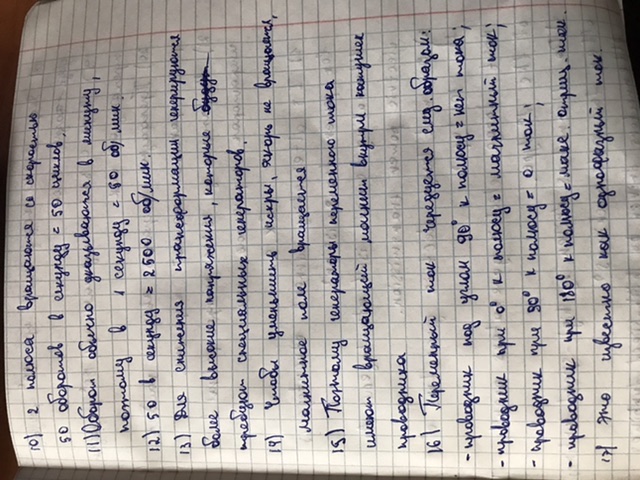 10) 2 полюса вращаются со скоростью
50 оборотов в секунду = 50 циклов,
11) Оборот обычно указываются в минуту,
поэтому в 1 секунду = 60 об/мин.
12) 50 в секунду = 2500 об/мин
13) Для снижения трансформации генерируются
более высокие напряжения, которые
требуют специальных генераторов,
14) Чтобы уменьшить искры, якорь не вращается,
Магнитное поле вращается
15) Поэтому генераторы переменного тока
имеют вращающий магнит внутри катушек
проводника
16) Переменный ток чередуется след. образом:
- проводник под углом 90° к полюсу = нет тока;
- проводник при 0° к полюсу = магнитный ток;
- проводник при 90° к полюсу = 0 ток;
- проводник при 180° к полюсу = макс. отриц. ток.
17) Это известно как однофазный ток.